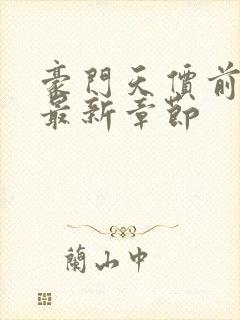 豪門天價前
最新章節
蘭山中